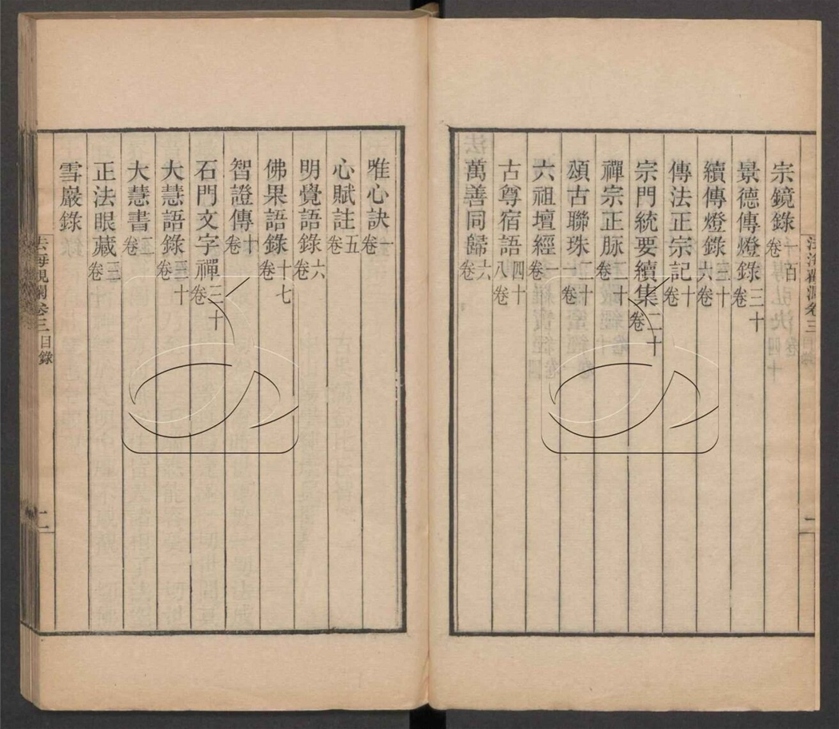 宗鏡錄一百卷
景德傳燈錄三十卷
續傳燈錄三十六卷
傳法正宗記十卷
宗門統要續集二十卷
禪宗正脉二十卷
頌古聯珠二十一卷
六祖壇經一卷
古尊宿語四十八卷
萬善同歸六卷
唯心訣一卷
心賦註五卷
明覺語錄六卷
佛果語錄十七卷
智證傳十卷
石門文字禪三十卷
大慧語錄三十卷
大慧書二卷
正法眼藏三卷
雪巖錄
法海觀瀾卷三目錄
二